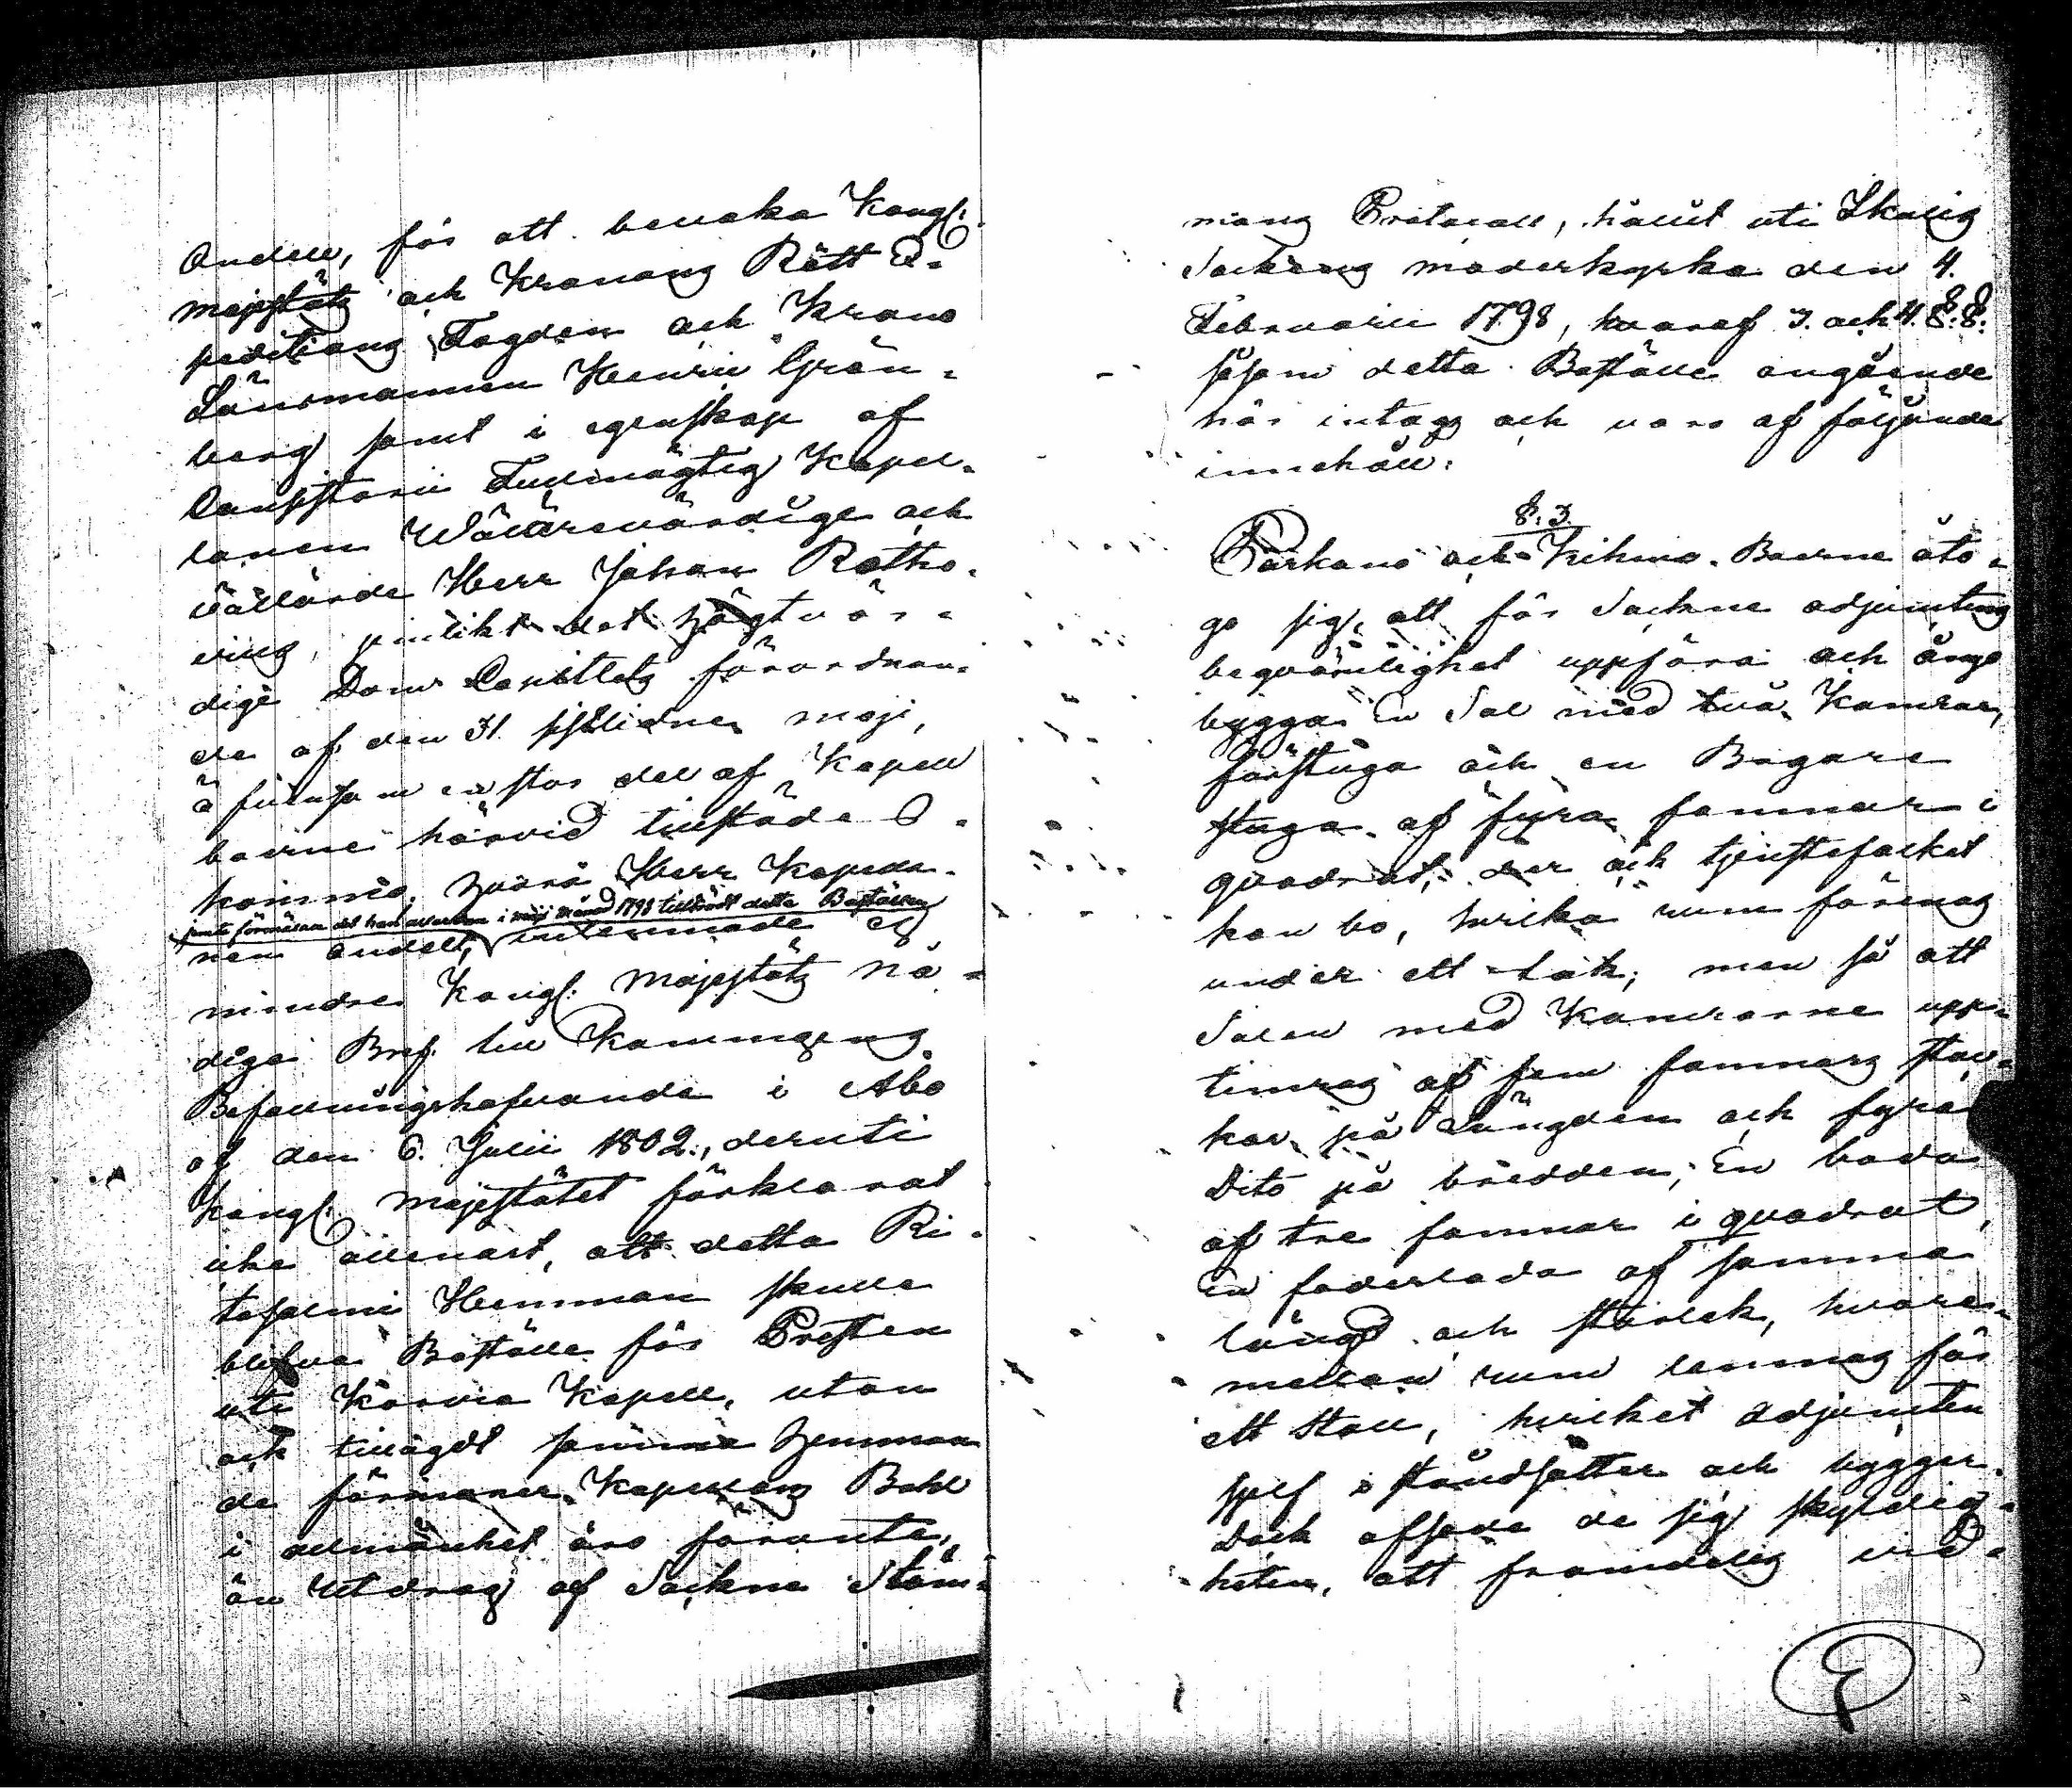 Andell, för att bevaka Kongl:
majestäts och Kronans Rätt Ex-
peditions Fogden och Krono
Länsmannen Henric Grön-
berg samt i egenskap af
Consistorii Fullmägtig Kapel-
lanen Wälärevördige och
vällärde Herr Johan Rotho-
vius, på det högtvör-
dige Dom Capitlets förordnan-
de af den 31 sistlidne maji,
äfvensom en stor del af Kapell
boerne härvid tillstädes
kommo. hvarå Herr Kapella-
jemte förmälan det han allaredan i maji månad 1798 tillträdt detta Boställe
nen Andell,
mindre Kongl: Majestäts nå-
diga Bref till Konungens
Befallningshafvande i Åbo
af den 6. Julii 1802., deruti
Kongl: Majestätet förklarat
icke allenast, att detta Ri-
tasalmi Hemman skulle
blifva Boställe för Presten
uti Karvia Kapell, utan
ock tillagdt samma Hemman
de förmoner, Kapellans Bohl
i allmänhet äro förunte,
än Utdrag af Sockne Stäm-
mans Protocoll, hållit uti Ikalis
Sockens moderkyrka den 4.
Februarii 1798, hvaraf 3. och 4. §.§.
såsom detta Boställe angående
här intogs och voro af följande
innehåll:
§: 3.
Parkano och Kihniö Boerne åto-
go sig, att för Sockne adjunctens
beqvämlighet uppföra och ånyo
bygga En Sal med två Kamrar,
förstuga och en Bagare
stuga af fyra famnar i
qvadrat, der och tjenstefolket
kan bo, hvilka rum förenas
under ett tak; men så att
Salen med Kamrarne upp-
timras af fem famnars stoc-
kar på Längden och fyra
Dito på bredden; En boda
af tre famnar i qvadrat,
En foderlada af samma
längd och storlek, hvare-
mellan rum lemnas för
ett stall, hvilket adjuncten
sjelf i ståndsätter och bygger.
Dock afsade de sig skyldig-
heten, att framdeles vid-